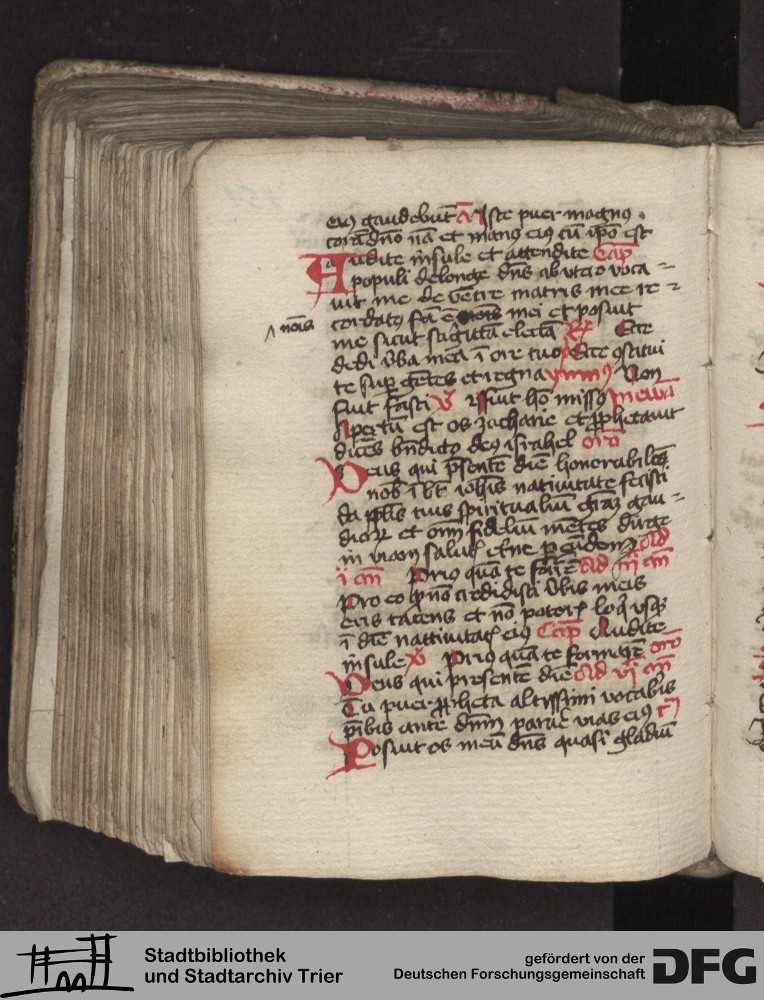 eiꝰ gaudebūt a̅ Iste puer magnꝰ .
corā dn̄o nā et manꝰ eiꝰ cū ip̄o est
Audite īsule et attendite Cap̄
populi de longe dn̄s ab utero voca =
uit me de vētre matris mee re =
cordatꝰ fū ē nois mei et posuit
nōis
me sicut sagittā electā R Ecce
dedi v̄ba mea ī ore tuo Ecce ꝯstitui
te sup gētes et regna ymnꝰ Non
fuit vasti v̄ ffuit hō missꝰ In ewā
Apertū est os zacharie et ꝓphetauit
dicēs bn̄dictꝰ deꝯ israhel oro̅
Deus qui p̄sentē diē honorabilē
nob̄ ī bt̄ ioh̄is natiuitate fecisti
da pp̄lis tuis spiritualiū gr̄aꝝ gau =
dioꝝ et oīm fideliū mētes dirige
in viam salutꝭ et̄ne p eūdem Ad
ī cm̄ Priꝰ quā te form̄ Ad iij cm̄
Pro eo qꝫ nō credidisti v̄bis meis
eris tacens et nō poterꝭ loqͥ usqꝫ
ī diē natiuitatꝭ eiꝰ Cap̄ Audite
īsule v̄ Priꝰ quā te formarē oro̅
Deus qui presentē diē Ad vj cm̄
Tu puer ꝓpheta altissimi vocab̄is
p̄ibis ante dn̄m parar̄ vias eiꝰ
Posuit os meū dn̄s quasi gladiū
Stadtbibliothek
und Stadtarchiv Trier
gefördert von der
Deutschen Forschungsgemeinschaft
DFG